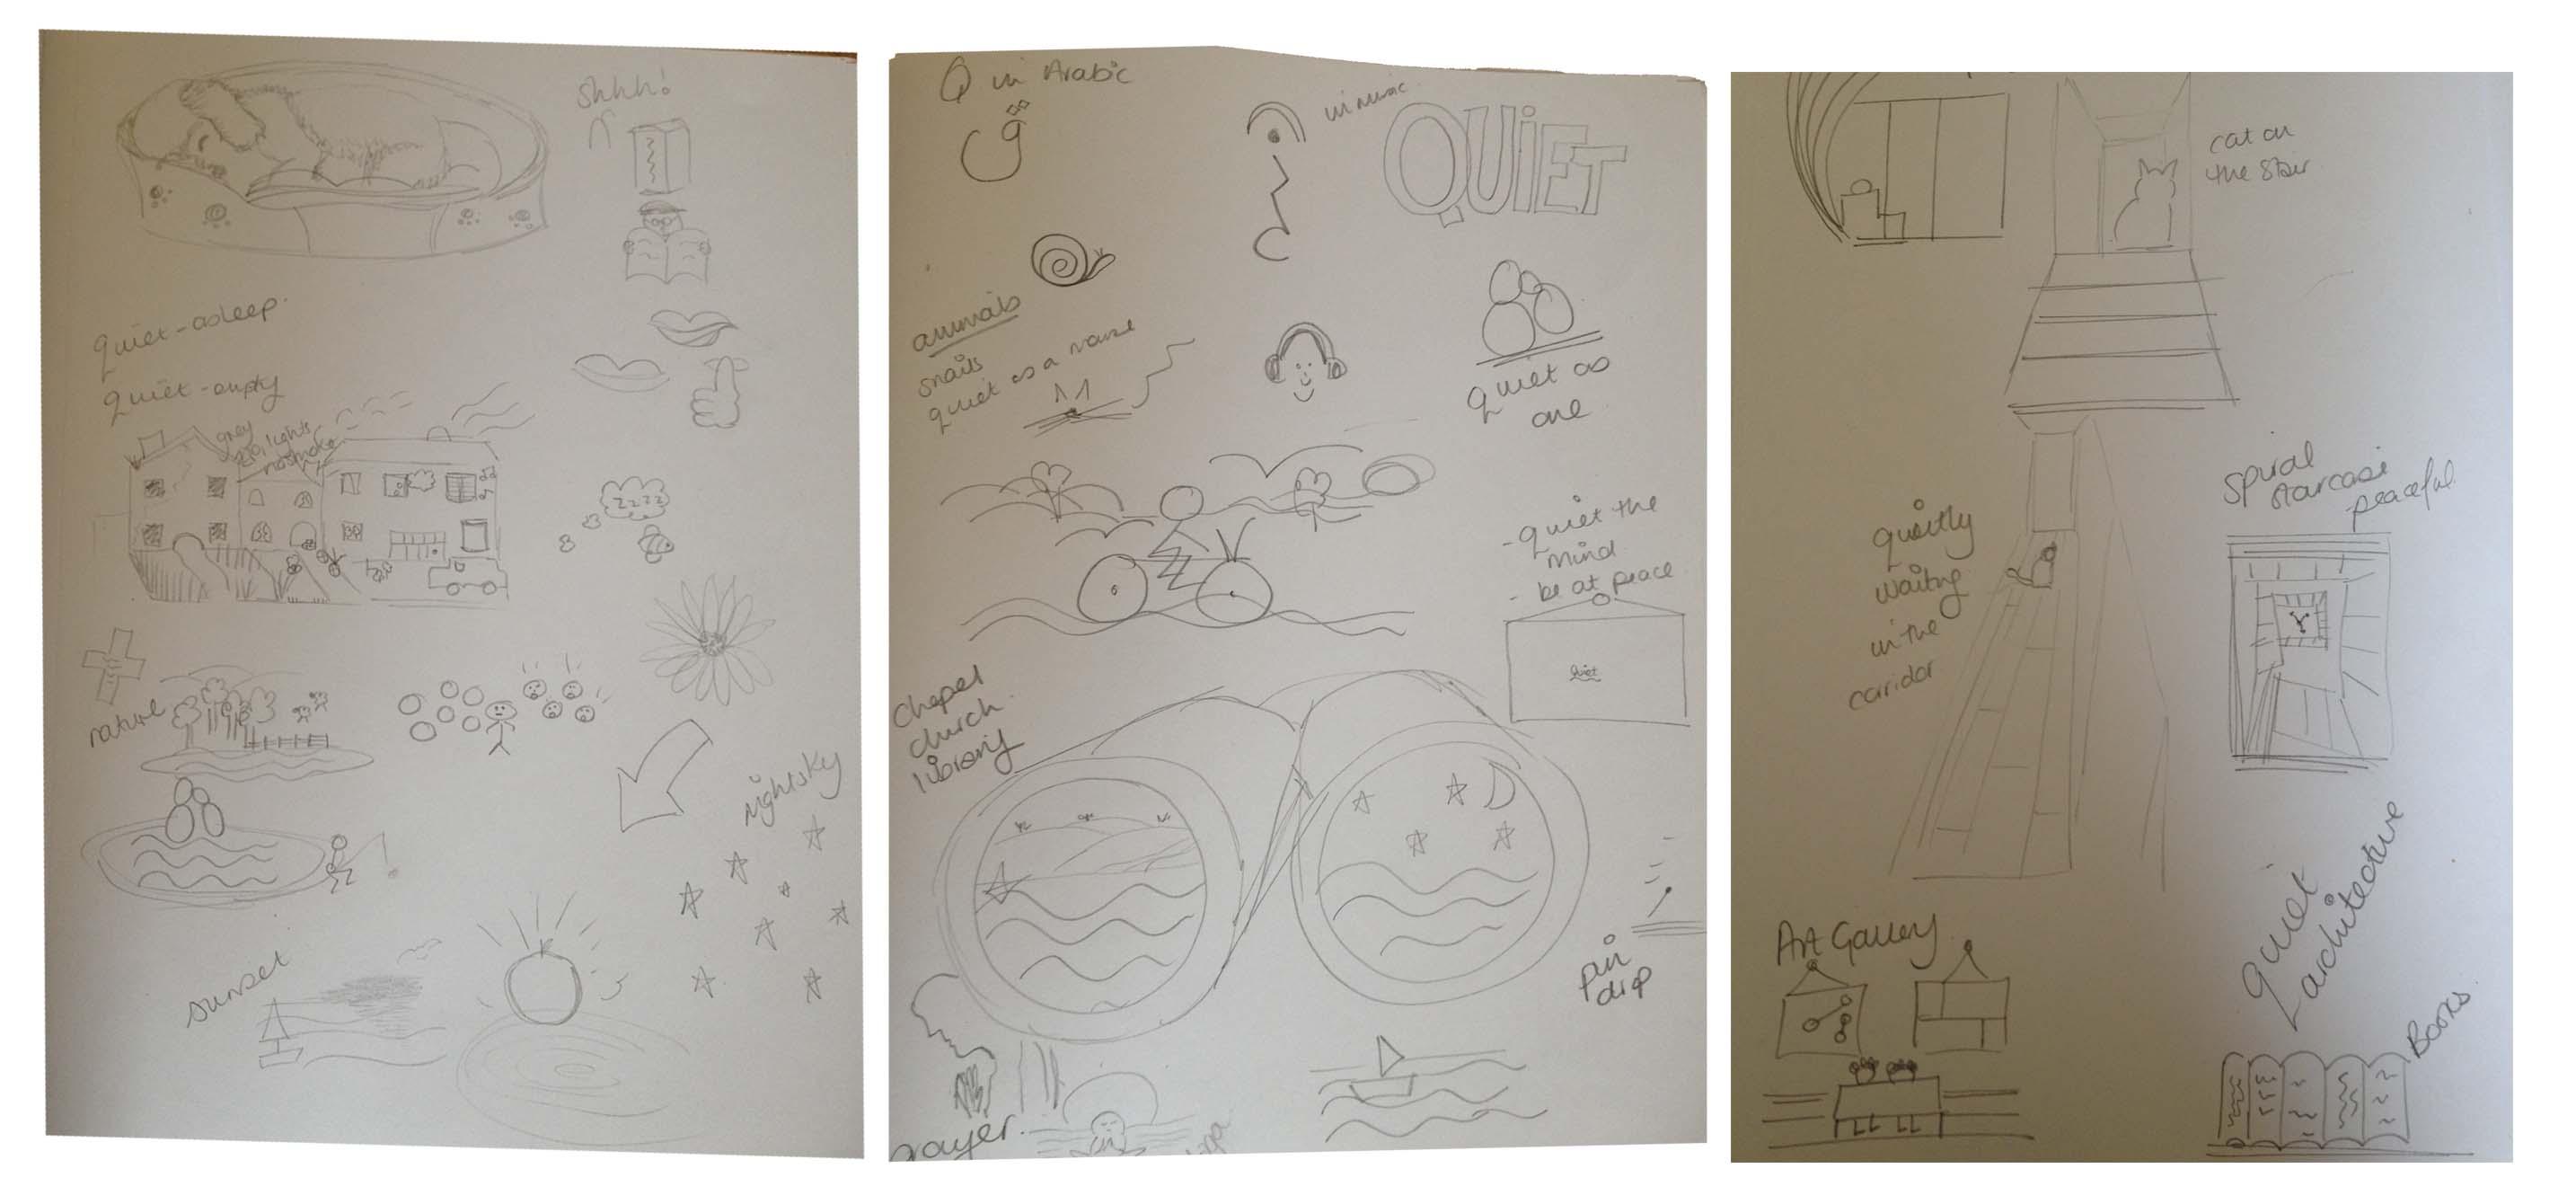 Shhh!
quiet-asleep.
quiet-empty
grey
no lights
no smoke
zzzz
nature
nightsky
sunset
Q in Arabic
ق
in music
QUiET
animals
snails
quiet as a mouse
quiet as
one
- quiet the
mind
- be at peace
quiet
Chapel
church
library
pin
drop
prayer.
cat on
the stair
quietly
waiting
in the
corridor
spiral
starcase
peaceful
Art Gallery
Quiet
architecture
Books